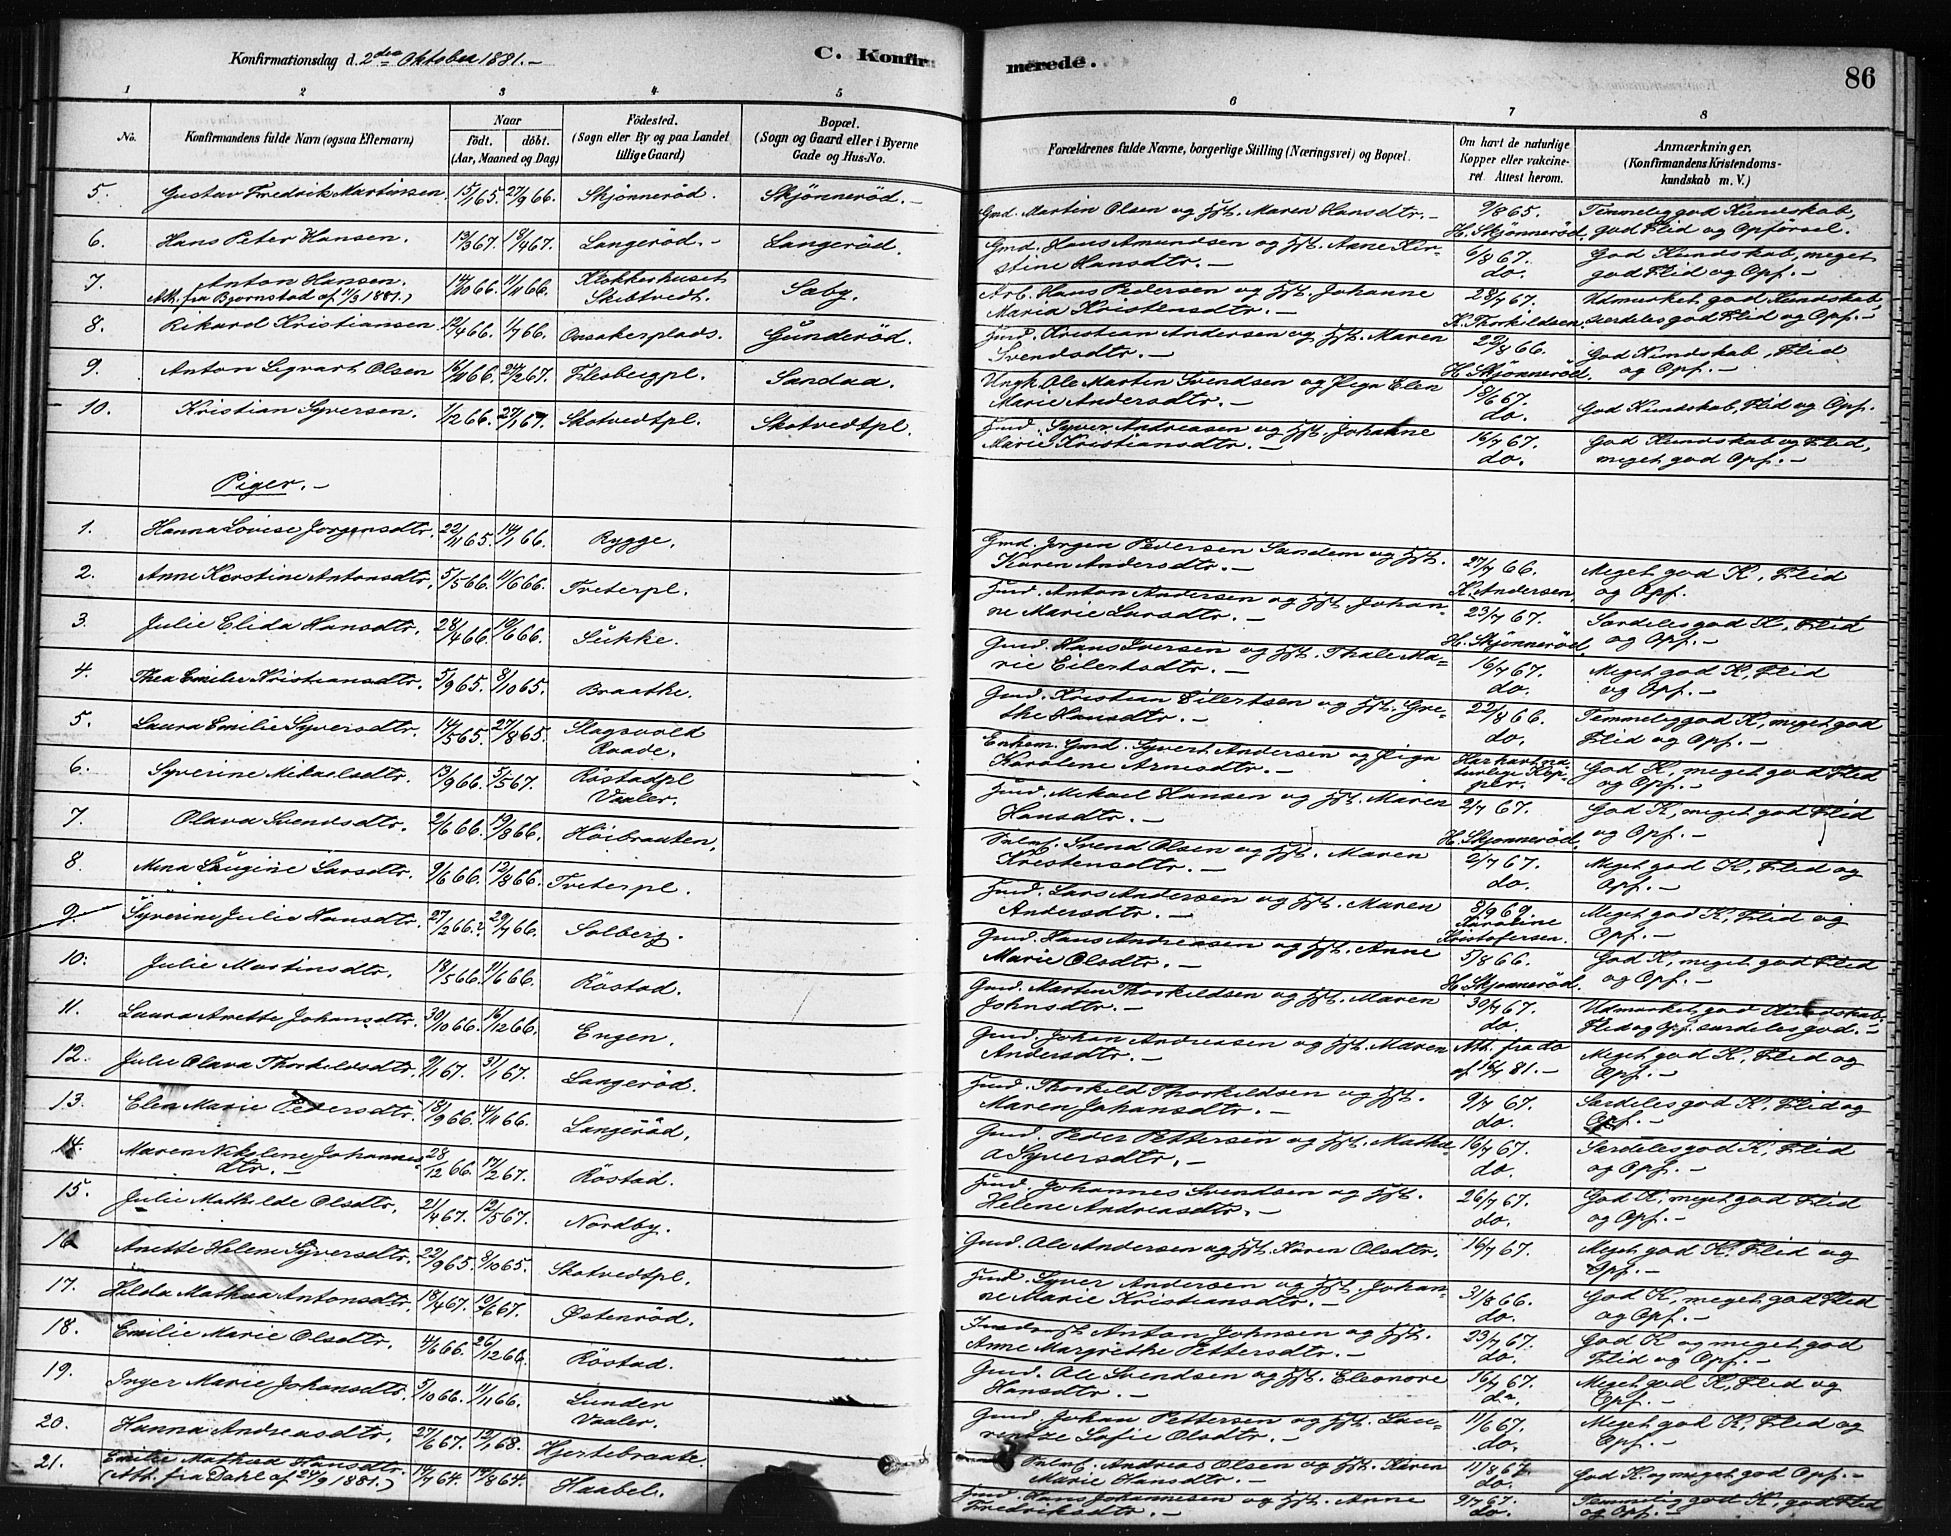 Konfirmationsdag d. 2den Oktober 1881.-
C. Konfirmerede.
86
1 2 3 4 5 6 7 8
No.
Konfirmandens fulde Navn (ogsaa Efternavn)
Naar
födt. döbt.
(Aar, Maaned og Dag)
Födested.
(Sogn eller By og paa Landet
tillige Gaard)
Bopæl.
(Sogn og Gaard eller i Byerne
Gade og Hus-No.
Forældrenes fulde Navne, borgerlige Stilling (Næringsvei) og Bopæl.
Om havt de naturlige
Kopper eller vakcine-
ret. Attest herom.
Anmærkninger.
(Konfirmandens Kristendoms-
kundskab m. V.)
5. Gustav Fredrik Martinsen. 15/1 65. 27/9 66. Skjønneröd. Skjønneröd.-
Gmd. Martin Olsen og Hst. Maren Hansdtr.- 9/8 65. Temmelig god Kundskab,
H. Skjønneröd. god Flid og Opförsel.
6. Hans Peter Hansen. 13/3 67. 18/4 67. Langeröd.- Langeröd.
Gmd. Hans Amundsen og Hst. Anne Kir- 6/8 67. God Kundskab, meget
stine Hansdtr.- do. god Flid og Opf.-
7. Anton Hansen. 14/10 66. 11/11 66. Klokkerhuset Saby.
Att. fra Bjørnstad af 11/3 1881.) Skibtvedt.
Arb. Hans Pedersen og Hst. Johanne 28/7 67. Udmærket god Kundskab,
Maria Kristensdtr.- K. Thorkildsen. særdeles god Flid og Opf.-
8. Rikard Kristiansen 12/4 66. 1/7 66. Onsakerplads. Gunderöd.
Hmd. Kristian Andersen og Hst. Maren 22/8 66. God Kundskab, Flid
Svendsdtr.- H. Skjønneröd. og Opf.-
9. Anton Sigvart Olsen 16/11 66. 24/2 67. Flesbergpl. Sandaa.
Ungk. Ole Martin Svendsen og Pige Elen 18/6 67. God Kundskab, Flid og Opf.
Marie Andersdtr.- do.
10. Kristian Syversen. 1/12 66. 27/1 67. Skotvedtpl. Skotvedtpl.
Hmd. Syver Andreasen og Hst. Johanne 16/7 67. God Kundskab og Flid,
Marie Kristiansdtr.- do. meget god Opf.-
Piger.-
1. Hanna Lovise Jorgensdtr. 22/11 65. 14/1 66. Rygge.
Gmd. Jorgen Pedersen Sandem og Hst. 27/7 66. Meget god K, Flid
Karen Andersdtr.- K. Andersen. og Opf.
2. Anne Kerstine Antonsdtr. 5/5 66. 11/6 66. Tveterpl.
Hmd. Anton Andersen og Hst. Johan- 23/7 67. Særdeles god K, Flid
ne Marie Larsdtr.- H. Skjønneröd. og Opf.-
3. Julie Elida Hansdtr. 28/4 66. 19/6 66. Sukke.
Gmd. Hans Iversen og Hst. Thale Ma- 16/7 67. Meget god K, Flid
rie Eilertsdtr.- do. og Opf.-
4. Thea Emilie Kristiansdtr. 5/9 65. 8/10 65. Braatke.
Gmd. Kristian Eilertsen og Hst. Gre- 22/8 66. Temmelig god K, meget god
the Hansdtr.- do. Flid og Opf.-
5. Laura Emilie Syversdtr. 14/5 65. 27/8 65. Slagsvold
Raade.
Enkem. Gmd. Syvert Andersen og Pige Har havt na- God K, meget god Flid
Karoline Arnesdtr.- turlige Kop- og Opf.-
per.
6. Syverine Mikaelsdtr. 13/9 66. 5/5 67. Röstadpl
Vaaler.
Hmd. Mikael Hansen og Hst. Maren 2/7 67. God K, meget god Flid
Hansdtr.- H. Skjønneröd. og Opf.-
7. Olava Svendsdtr. 2/6 66. 19/8 66. Höibraaten.
Inlmf. Svend Olsen og Hst. Maren 2/7 67. Meget god K, Flid og
Kristensdtr.- do. Opf.-
8. Mina Laugine Larsdtr. 9/6 66. 12/8 66. Tveterpl.
Hmd. Lars Andersen og Hst. Maren 8/9 69. Meget god K, Flid og
Andersdtr.- Karoline Opf.-
Kristofersen.
9. Syverine Julie Hansdtr. 27/2 66.? 29/7 66. Solberg.
Gmd. Hans Andreasen og Hst. Anne 5/8 66. God K, meget god Flid
Marie Olsdtr.- H. Skjønneröd. og Opf.-
10. Julie Martinsdtr. 18/5 66. 9/6 66. Röstad.
Gmd. Martin Thorkildsen og Hst. Maren 30/7 67. Udmærket god Kundskab.
Johnsdtr.- do. Flid og Opf. særdeles god.-
11. Laura Anette Johansdtr. 30/10 66. 16/12 66. Engen.
Gmd. Johan Andreasen og Hst. Maren Att. fra do Meget god K, Flid og
Andersdtr.- af 16/7 81.- Opf.-
12. Julie Olava Thorkildsdtr. 9/1 67. 31/1 67. Langeröd.
Hmd. Thorkild Thorkildsen og Hst. 9/7 67. Særdeles god K, Flid og
Maren Johansdtr.- do. Opf.
13. Elen Marie Pedersdtr. 18/9 66. 4/11 66. Langeröd.
Gmd. Peder Pettersen og Hst. Mathe- 16/7 67. Særdeles god K, Flid
a Syversdtr.- do. og Opf.-
14. Maren Nikoline Johannes- 28/12 66. 17/2 67. Röstad.
dtr.-
Hmd. Johannes Svendsen og Hst. 26/7 67. God K, meget god Flid
Helene Andreasdtr.- do. og Opf.-
15. Julie Mathilde Olsdtr. 21/4 67. 12/5 67. Nordby.
Gmd. Ole Andersen og Hst. Karen Olsdtr. 16/7 67. Meget god K, Flid og
Opf.-
16 Anette Helene Syversdtr. 22/9 65. 8/10 65. Skotvedtpl.
Hmd. Syver Andersen og Hst. Johan- 31/8 66. God K, meget god Flid
ne Marie Kristiansdtr.- do. og Opf.-
17. Hilda Mathea Antonsdtr. 18/4 67. 10/6 67. Østenröd.
Anton Johnsen og Hst. 23/7 67. God K og meget god
Anne Margrethe Pettersdtr.- do. Flid og Opf.-
18. Emilie Marie Olsdtr. 4/6 66. 26/12 66. Röstad.
Gmd. Ole Svendsen og Hst. Eleonore 16/7 67. Meget god K, Flid og
Hansdtr.- do. Opf.-
19. Inger Marie Johansdtr. 5/10 66. 11/11 66. Lunder
Vaaler.
Gmd. Johan Pettersen og Hst. Lau- 11/6 67. Meget god K, Flid og
rentze Sofie Olsdtr.- do. Opf.-
20. Hanna Andreasdtr. 27/6 67. 12/1 68. Hjertebraate.
Inlmf. Andreas Olsen og Hst. Karen 11/8 67. God K og meget god Opf.-
Marie Hansdtr.- do.
21. Emilie Mathea Hansdtr. 14/7 64. 19/8 64. Haabel.
(Att. fra Dahl af 24/9 1881.)
Hmd. Hans Johannesen og Hst. Anne 9/7 67. Temmelig godt K, god Flid
Fredriksdtr.- do. og Opf.-